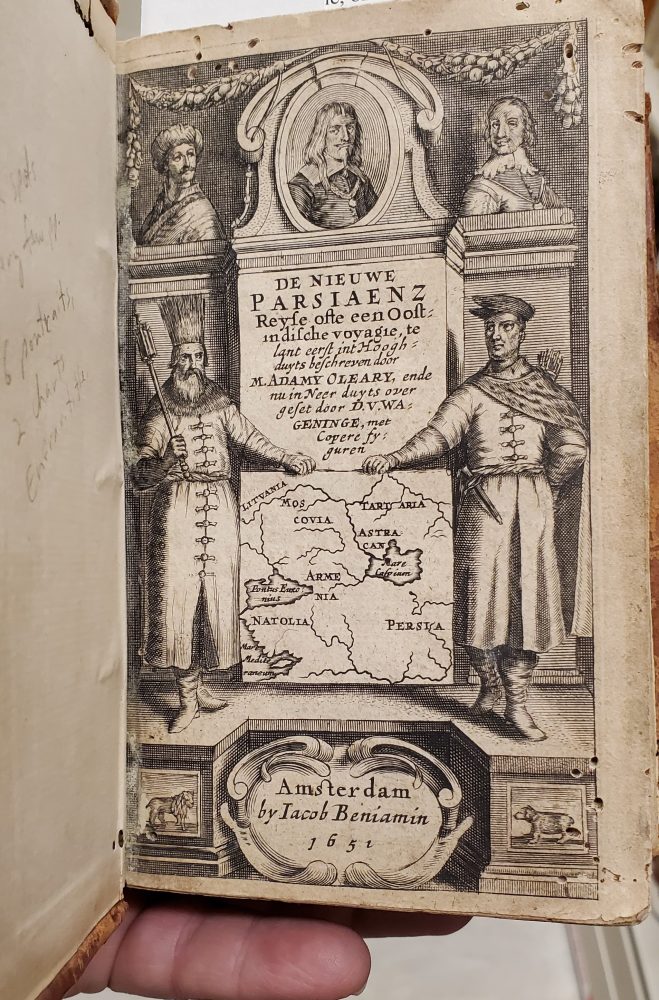 DE NIEUWE
PARSIAENZ
Reyse ofte een Oost-
indische voyagie, te
lant eerst int Hoogh-
duyts beschreven door
M. ADAMY OLEARY, ende
nu in Neer duyts over
geset door D.V.WA-
GENINGE, met
Copere fy-
guren
LITVANIA
MOS
COVIA
TARTARIA
ASTRA
CAN
Mare
Caspium
ARME
NIA
Pontus Euxi
nius
NATOLIA
PERSIA
Mare
Medite
raneum
Amsterdam
by Iacob Beniamin
1651
6 portraits,
2 charts